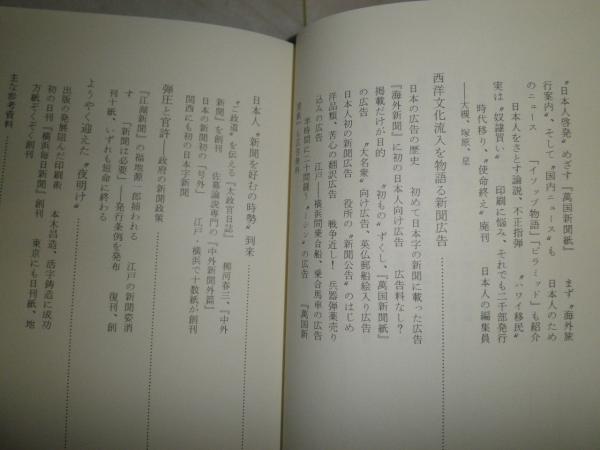 〝日本人啓発〟めざす『萬国新聞紙』　まず〝海外旅
行案内〟、そして〝国内ニュース〟も　日本人のため
のニュース　『イソップ物語』『ピラミッド』も紹介
日本人をさとす論説、不正指弾　〝ハワイ移民〟
実は〝奴隷買い〟　印刷に悩み、それでも二千部発行
時代移り、〝使命終え〟廃刊　日本人の編集員
——大槻、塚原、星
西洋文化流入を物語る新聞広告
日本の広告の歴史　初めて日本字の新聞に載った広告
『海外新聞』に初の日本人向け広告　広告料なし？
掲載だけが目的　〝初もの〟ずくし、『萬国新聞紙』
の広告　〝大名衆〟向け広告、英仏郵船絵入り広告
日本人初の新聞広告　役所の〝新聞公告〟のはじめ
洋品類、苦心の翻訳広告　戦争近し！　兵器弾薬売り
込みの広告　江戸——横浜間乗合船、乗合馬車の広告
日本人〝新聞を好むの時勢〟到来
〝ご政道〟を伝える『太政官日誌』　柳河春三、『中外
新聞』を創刊　佐幕論説専門の『中外新聞外篇』
日本の新聞初の「号外」　江戸・横浜で十数紙が創刊
関西にも初の日本字新聞
弾圧と官許——政府の新聞政策
『江湖新聞』の福地源一郎捕われる　江戸の新聞姿消
す　「新聞は必要」——発行条例を発布　復刊、創
刊十紙、いずれも短命に終わる
ようやく迎えた〝夜明け〟
出版の発展阻んだ印刷術　本木昌造、活字鋳造に成功
初の日刊『横浜毎日新聞』創刊　東京にも日刊紙、地
方紙ぞくぞく創刊
主な参考資料